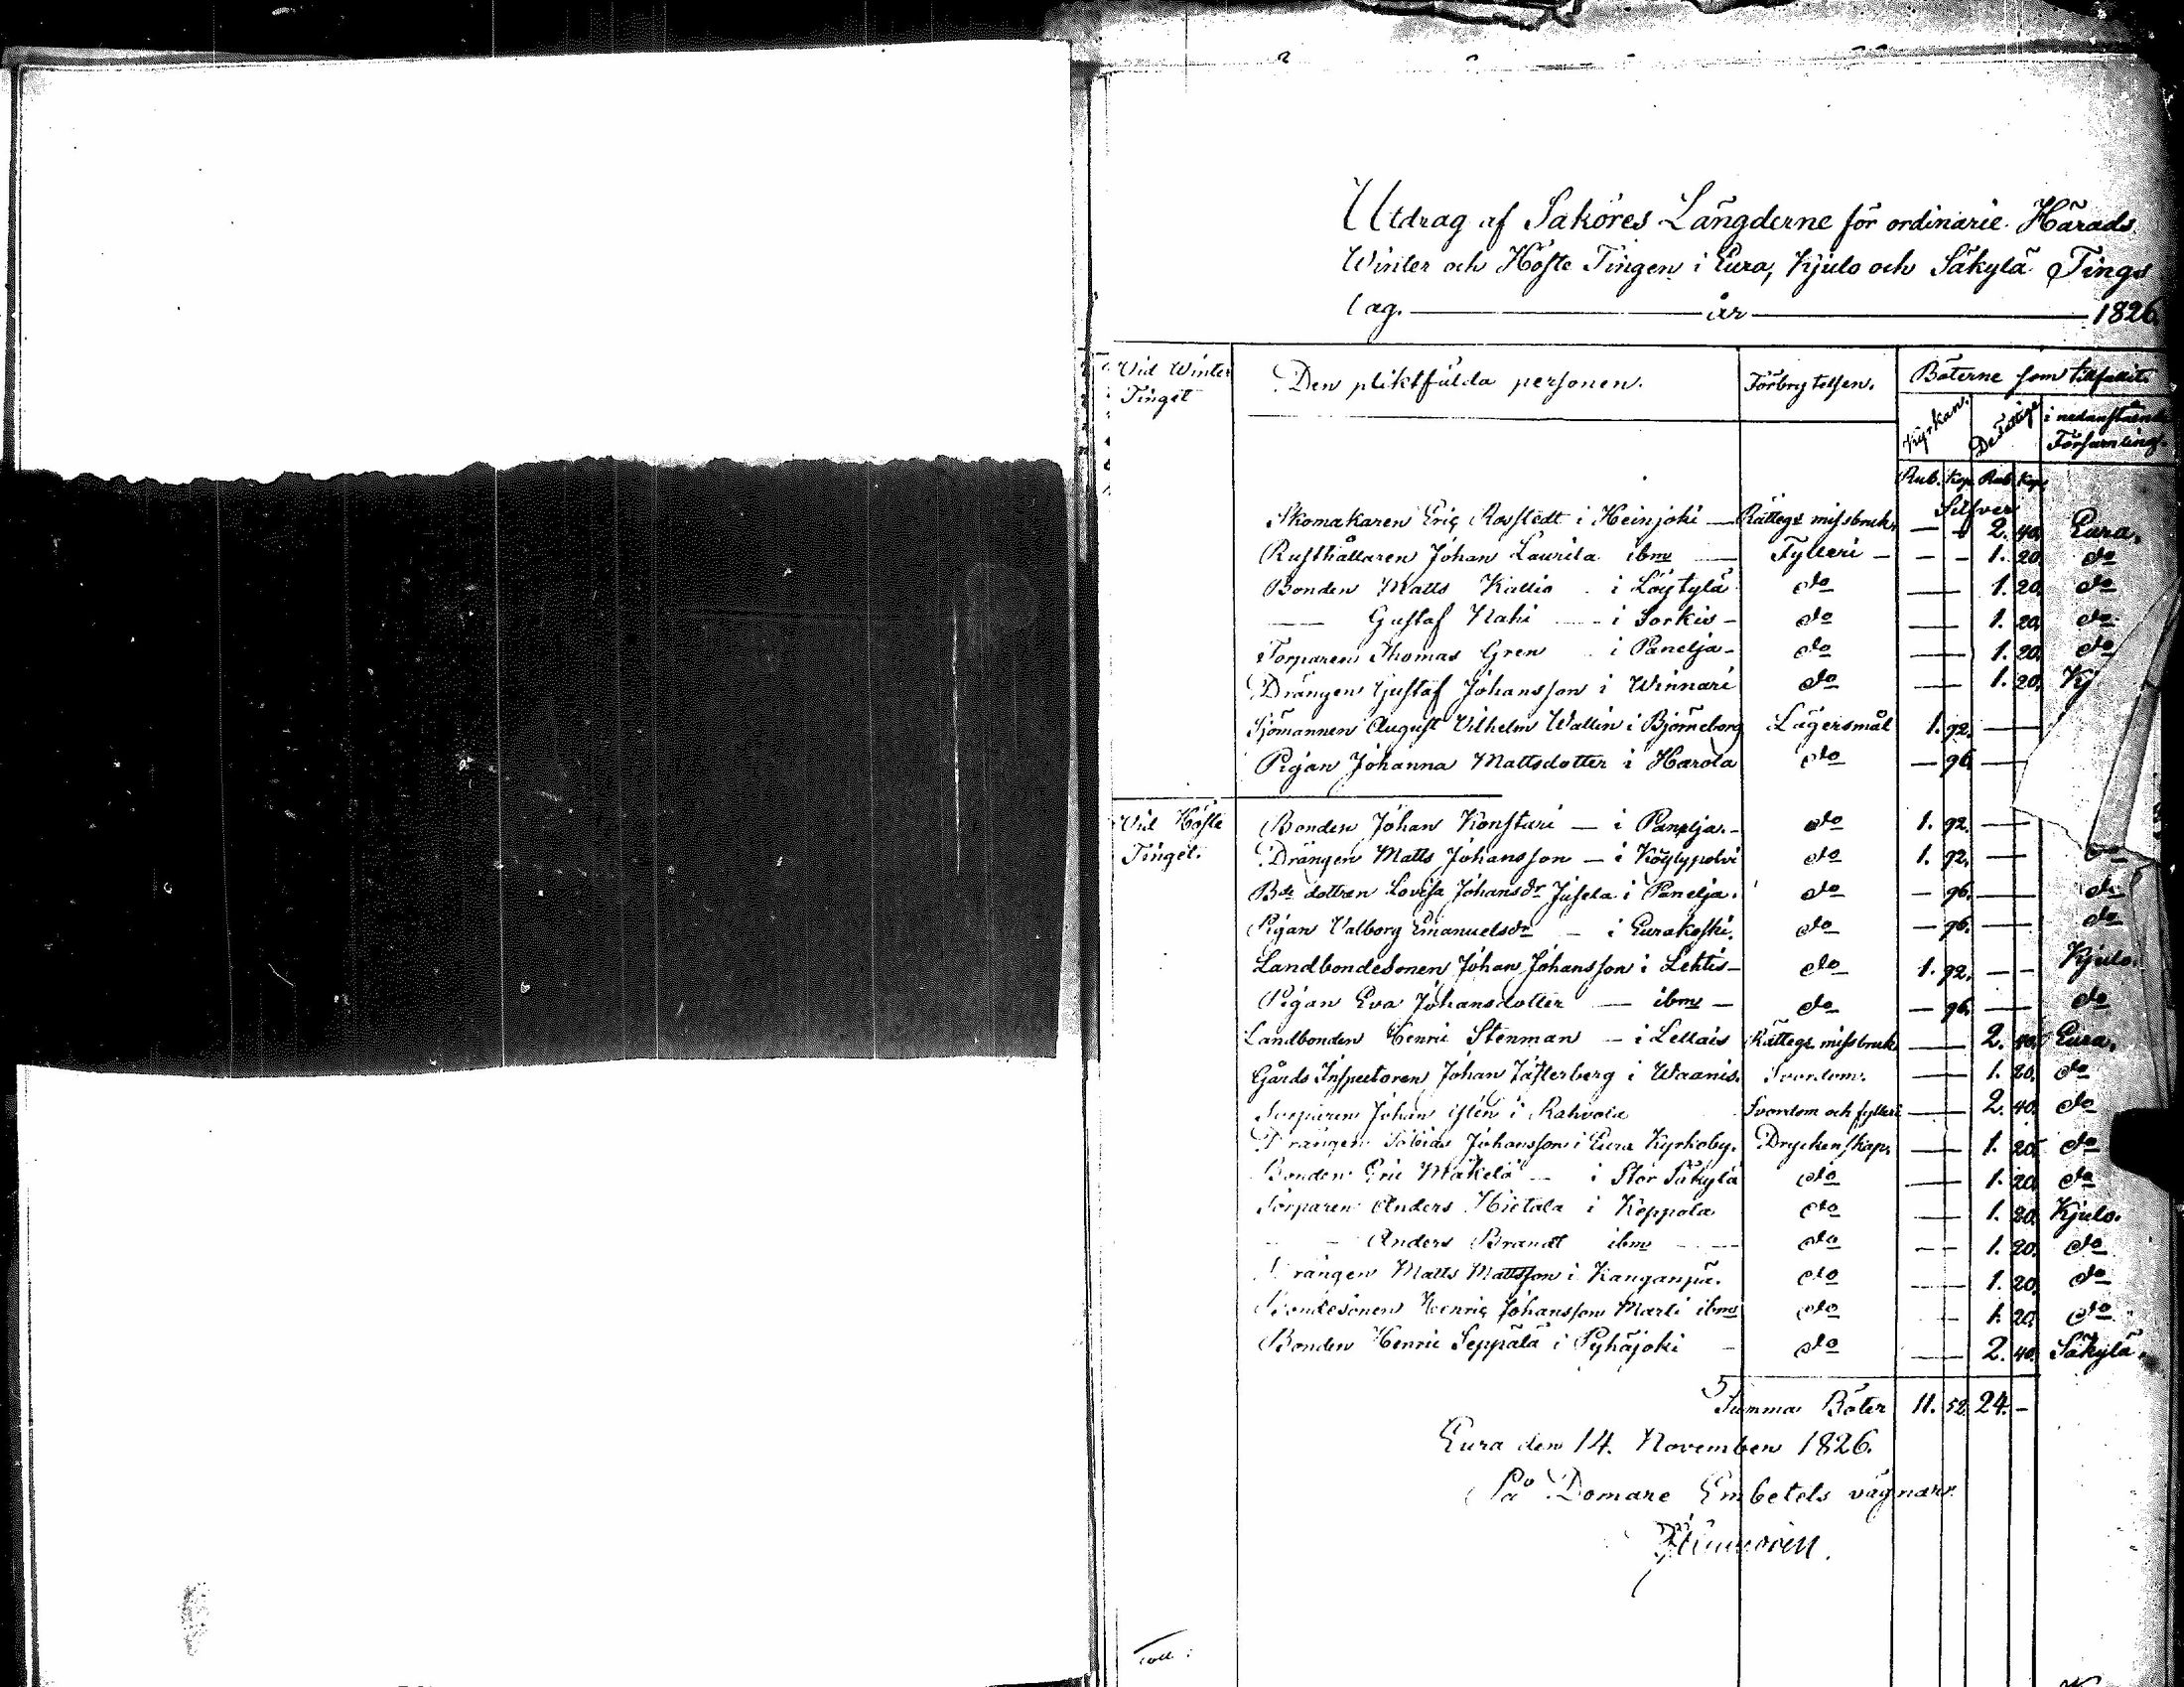 Utdrag af Saköres Längderne för ordinarie Härads
Winter och Höste Tingen i Eura, Kjulo och Säkylä Tings
lag. år 1826.
Vid Winter Tinget
Den pliktfälda personen. Förbrytelsen. Böterne som tillfallit
Kyrkan. De fattige i nedanstående Församling.
Rub. Kop. Rub. Kop.
Silfver
Skomakaren Eric Rosstedt i Heinjoki — Rätteg: missbruk — — 2. 40. Eura.
Rusthållaren Johan Laurila ibm — Fylleri — — — 1. 20. do
Bonden Matts Kallio i Löytylä do — 1. 20. do
— Gustaf Nahi — i Sorkis — do — 1. 20. do
Torparen Thomas Gren i Panelja — do — 1. 20. do
Drängen Gustaf Johansson i Winnari do — 1. 20. Kj
Sjömannen August Vilhelm Wallin i Björneborg Lägersmål 1. 92. —
Pigan Johanna Mattsdotter i Harola do — 96. —
Vid Höste Tinget.
Bonden Johan Konstari — i Panelja — do 1. 92. —
Drängen Matts Johansson — i Köylypolvi do 1. 92. — do
Bde dottren Lovisa Johansdr Jusela i Panelja. do — 96. — do
Pigan Valborg Emanuelsdr — i Eurakoski. do — 96. — do
Landbondesonen Johan Johansson i Lehtis — do 1. 92. — — Kjulo.
Pigan Eva Johansdotter — ibm — do — 96. — do
Landbonden Henric Stenman — i Lellais Rätteg: missbruk — 2. 40. Eura.
Gårds Inspectoren Johan Zasterberg i Waanis. Svordom. — 1. 20. do
Johan i Rahvola Svordom och fylleri — 2. 40. do
Drängen Tobias Johansson i Eura Kyrkoby. Dryckenskap. — 1. 20. do
Bonden Eric Mäkelä — i Stor Säkylä do — 1. 20. do
Torparen Anders Hietala i Keppola do — 1. 20. Kjulo.
— — Anders Brandt ibm — do — — 1. 20. do
Drängen Matts Mattsson i Kanganpä. do — 1. 20. do
Bondesonen Henric Johansson Marti ibm do — 1. 20. do
Bonden Henric Seppälä i Pyhäjoki — do — 2. 40. Säkylä.
Summa Böter 11. 52. 24. —
Eura den 14. November 1826.
På Domare Embetets vägnar.